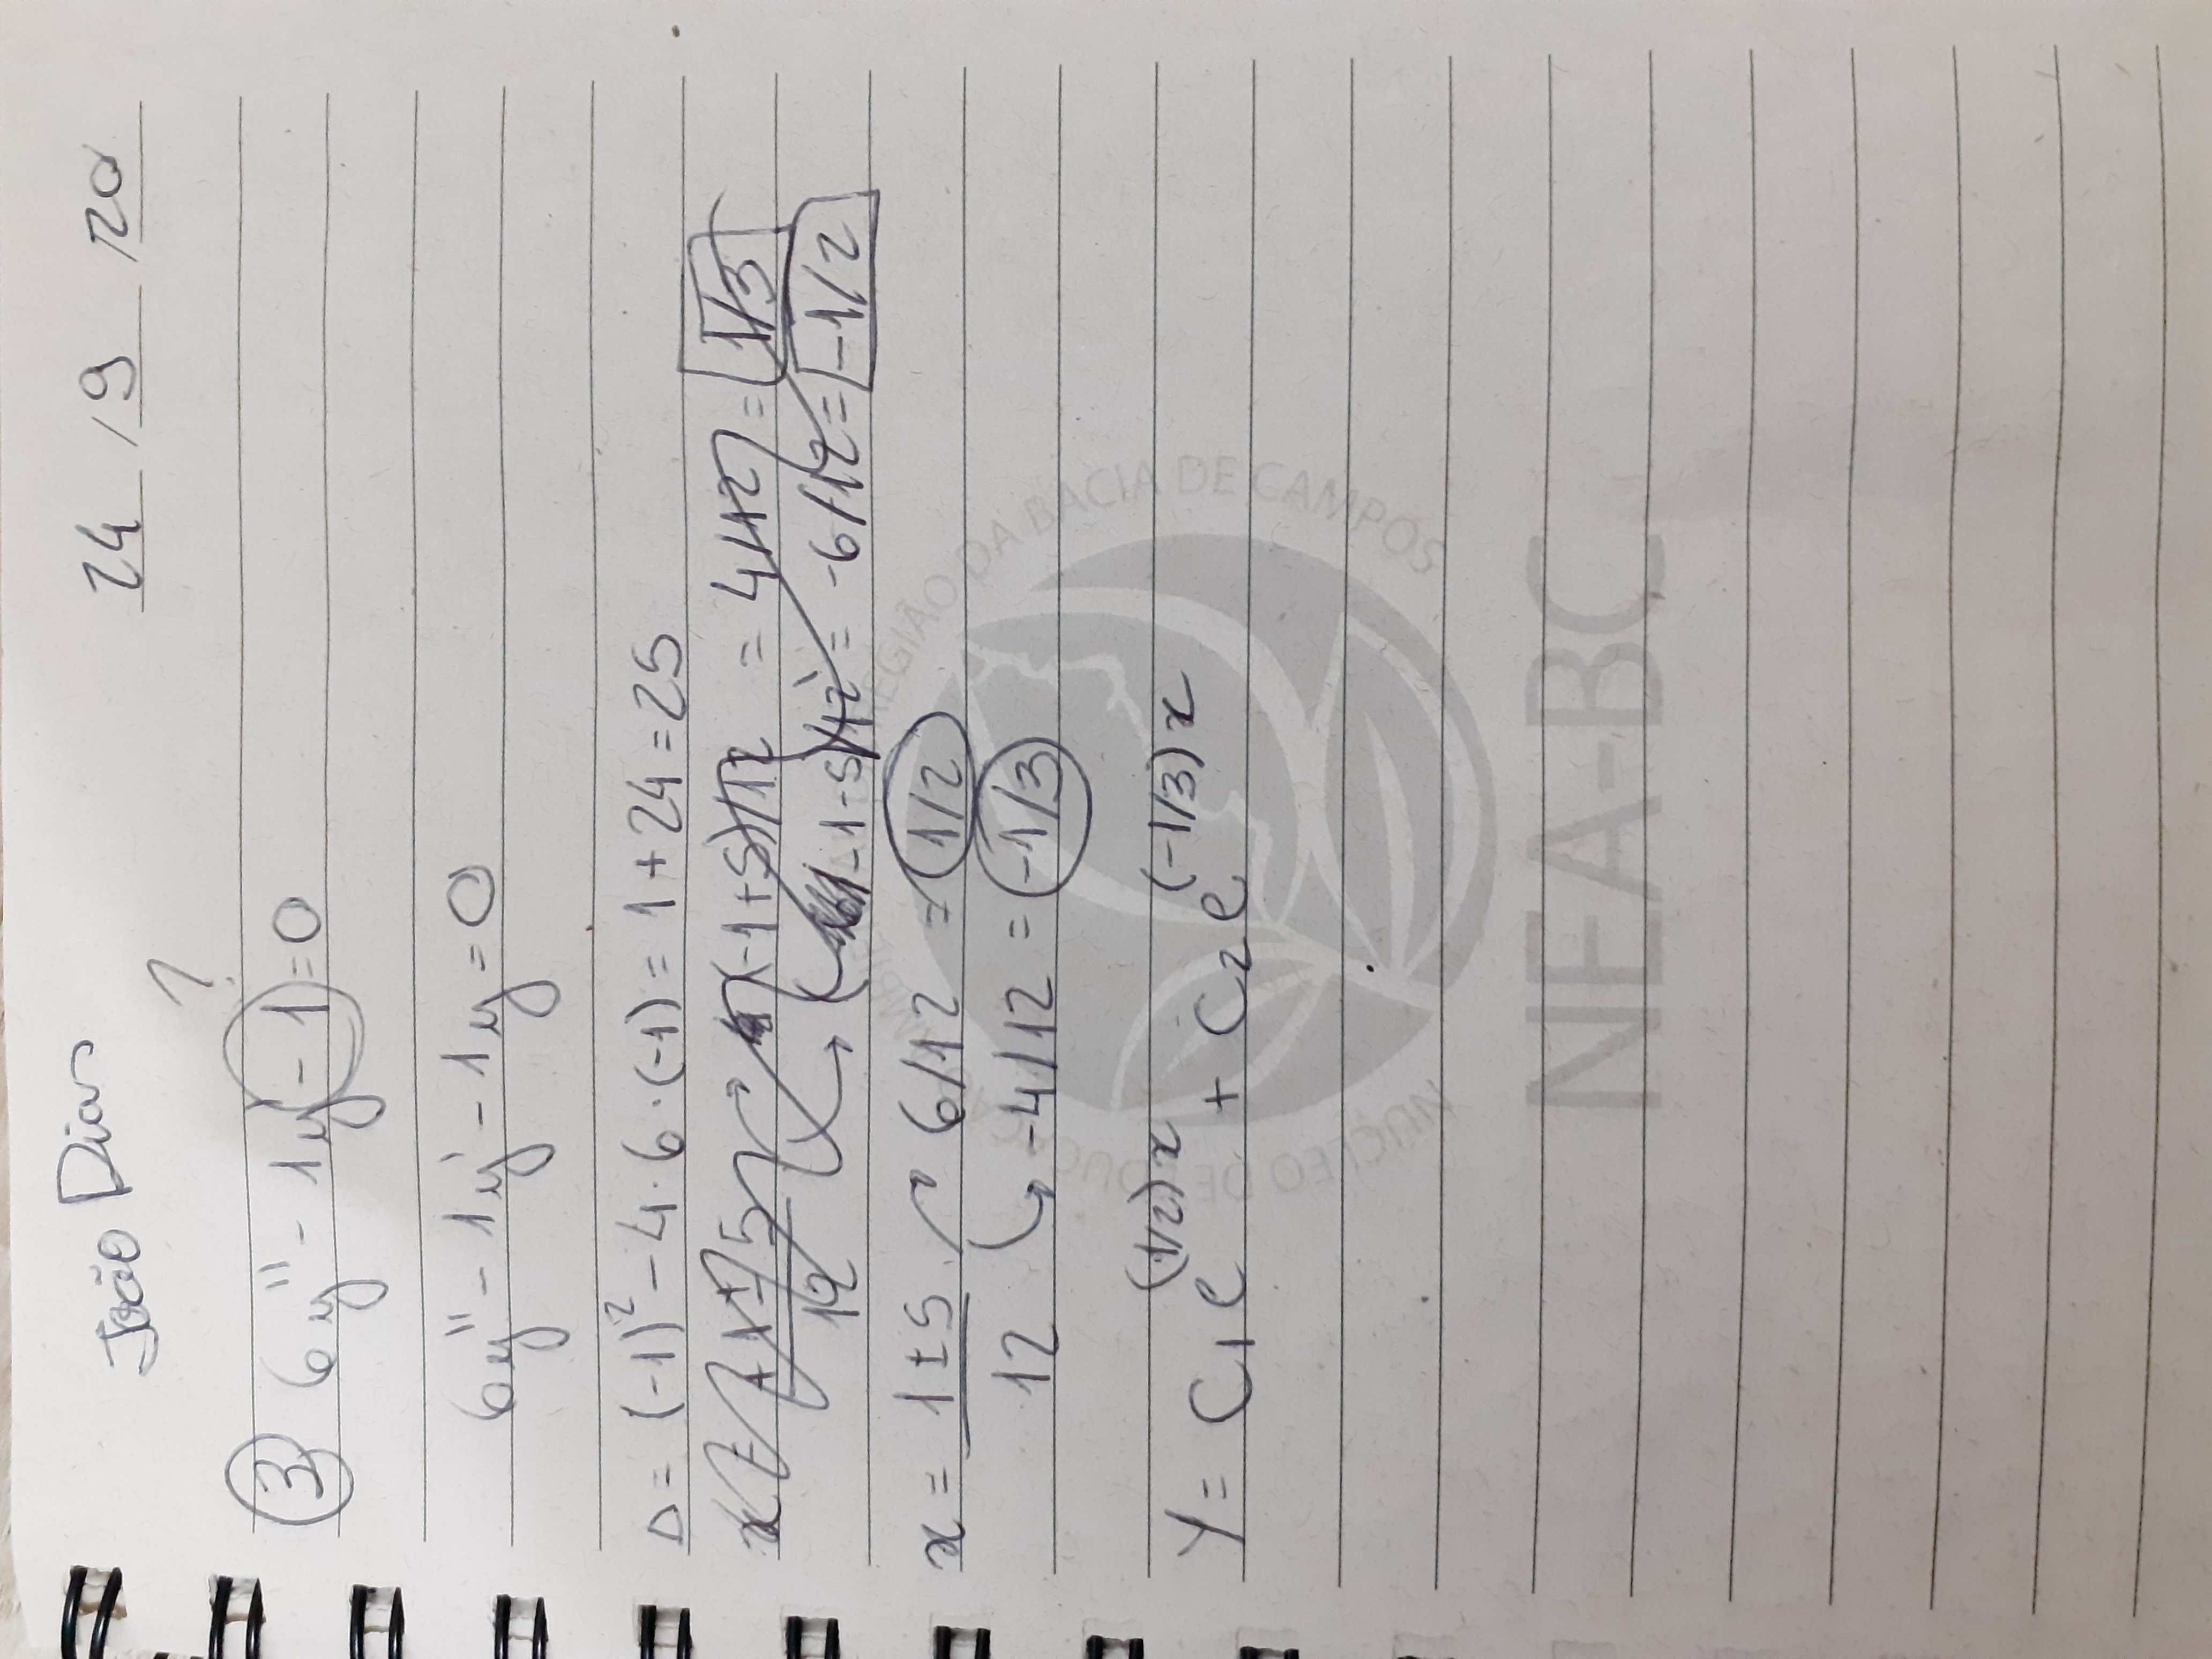 João Dias
24 / 9 / 20
?
3 6y'' - 1y' - 1 = 0
6y'' - 1y' - 1y = 0
Δ = (-1)² - 4 · 6 · (-1) = 1 + 24 = 25
x = +1 ± 5 / 12 (-1+5)/12 = 4/12 = 1/3
(-1-5)/12 = -6/12 = -1/2
x = 1 ± 5 / 12 6/12 = 1/2
-4/12 = -1/3
Y = C₁e^(1/2)x + C₂e^(-1/3)x
NÚCLEO DE EDUCAÇÃO AMBIENTAL DA REGIÃO DA BACIA DE CAMPOS
NEA-BC